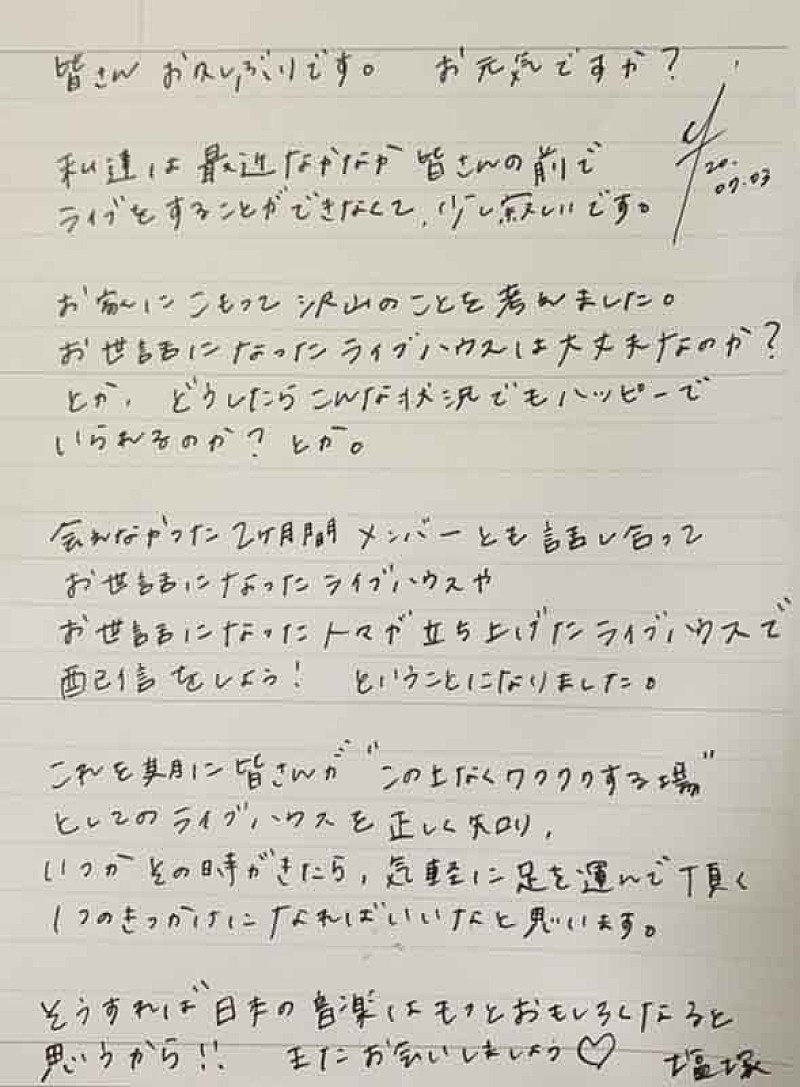 皆さん お久しぶりです。 お元気ですか?
20.
07.03
私達は最近なかなか皆さんの前で
ライブをすることができなくて、少し寂しいです。
お家にこもって沢山のことを考えました。
お世話になったライブハウスは大丈夫なのか?
とか、どうしたらこんな状況でもハッピーで
いられるのか?とか。
会えなかった2ヶ月間メンバーとも話し合って
お世話になったライブハウスや
お世話になった人々が立ち上げたライブハウスで
配信をしよう! ということになりました。
これを期に皆さんが"この上なくワクワクする場"
としてのライブハウスを正しく知り、
いつかその時がきたら、気軽に足を運んで頂く
1つのきっかけになればいいなと思います。
そうすれば日本の音楽はもっとおもしろくなると
思うから!! またお会いしましょう♡ 塩塚